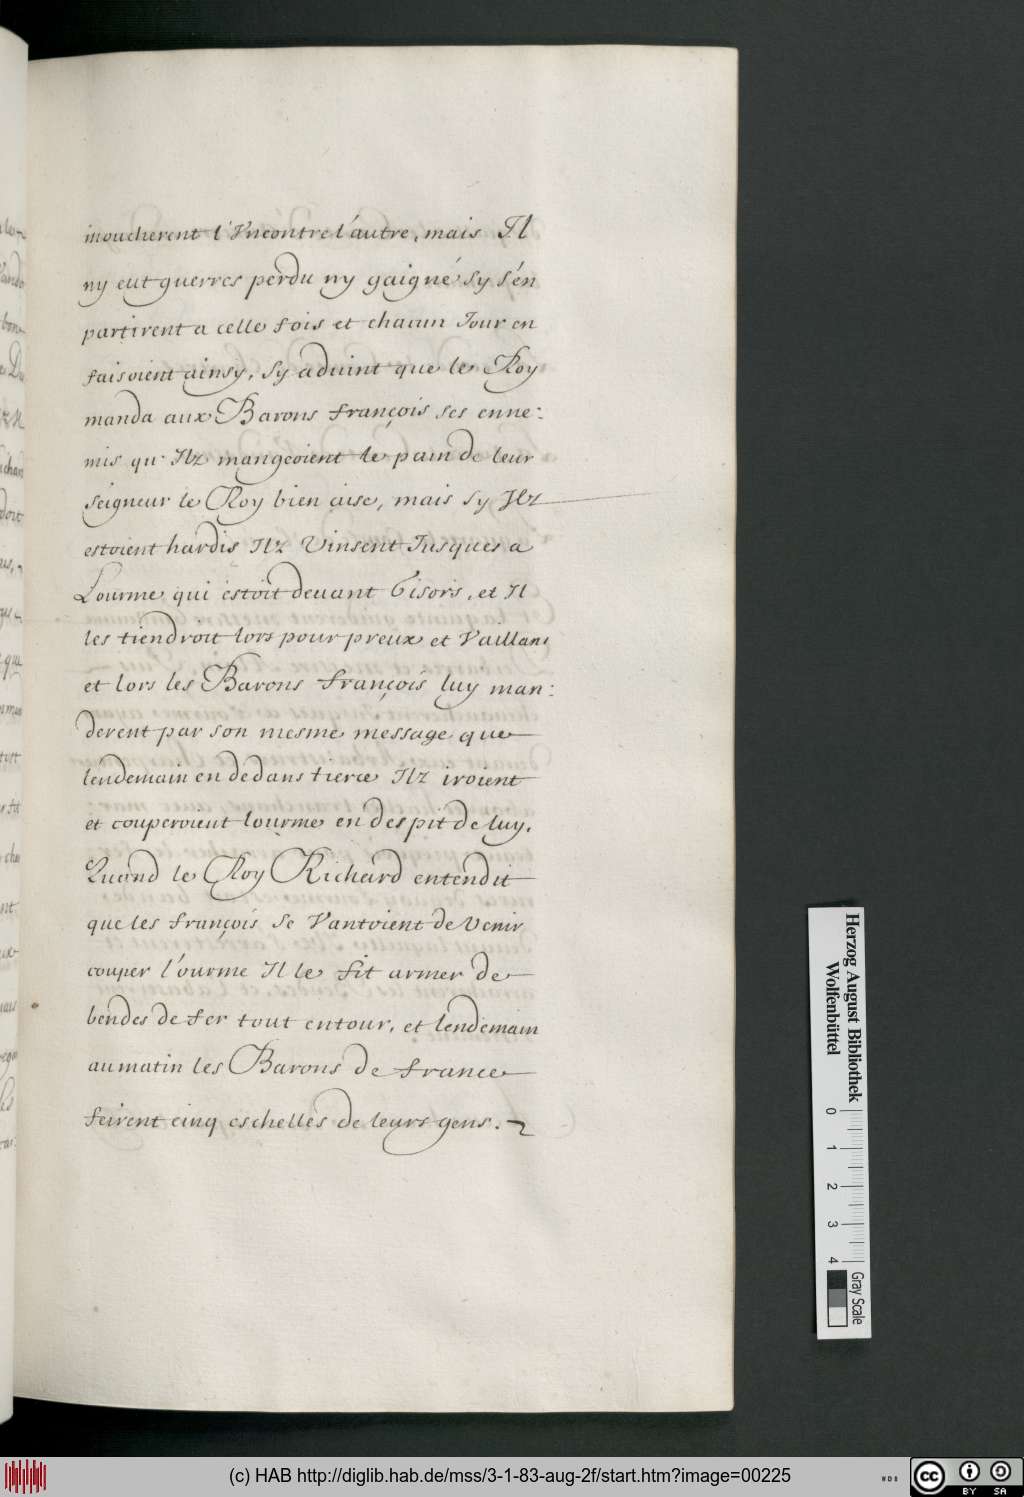 moucherent l'Vncontre l'autre, mais Il
ny eut guerres perdu ny gaigné sy s'en
partirent a celle fois et chacun Iour en
faisoient ainsy, Sy aduint que le Roy
manda aux Barons françois ses enne:
mis qu' Ilz mangeoient le pain de leur
seigneur le Roy bien aise, mais sy Ilz
estoient hardis Ilz Vinsent Iusques a
Lourme qui estoit deuant Gisors, et Il
les tiendroit lors pour preux et Vaillans
et lors les Barons françois luy man:
derent par son mesme message que
lendemain en dedans tierce Ilz iroient
et couperoient lourme en despit de luy.
Quand le Roy Richard entendit
que les françois se Vantoient de Venir
couper l'ourme Il le fit armer de
bendes de fer tout entour, et lendemain
au matin les Barons de france
feirent cinq eschelles de leurs gens.
Herzog August Bibliothek
Wolfenbüttel
0 1 2 3 4
Gray Scale
(c) HAB http://diglib.hab.de/mss/3-1-83-aug-2f/start.htm?image=00225
WDB
cc BY SA